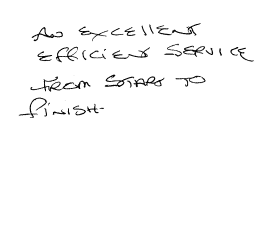 An Excellent
Efficient Service
From Start to
Finish-